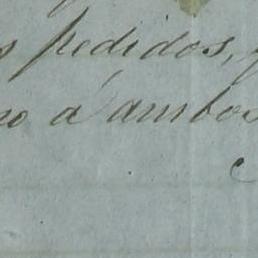 s pedidos, y
no á ambos